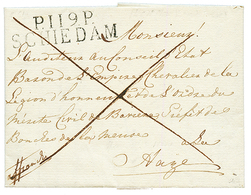 P.119.P.
SCHIEDAM
Monsieur
L'auditeur au Conseil d'Etat
Baron de l'Empire Chevalier de la
Legion d'honneur et de l'Ordre du
Mérite Civil de Baviere Préfet des
Bouches de la Meuse
a La
Haije